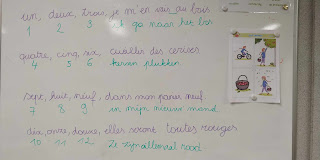 un, deux, trois, je m'en vais au bois
1 2 3 ik ga naar het bos
quatre, cinq, six, cueillir des cerises
4 5 6 kersen plukken
sept, huit, neuf, dans mon panier neuf
7 8 9 in mijn nieuwe mand
dix, onze, douze, elles seront toutes rouges
10 11 12 Ze zijn allemaal rood